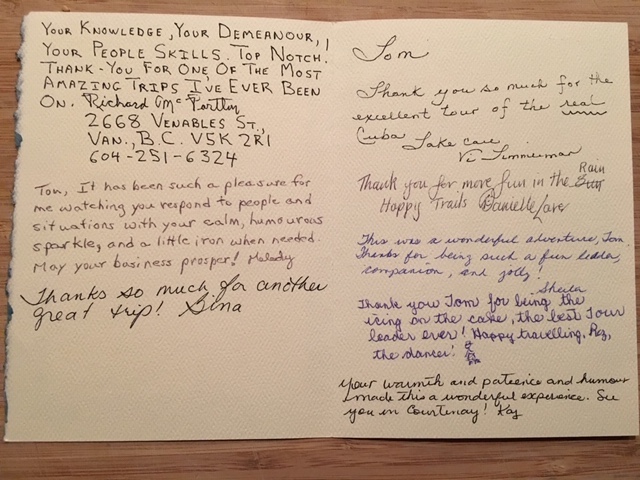 YOUR KNOWLEDGE, YOUR DEMEANOUR,
YOUR PEOPLE SKILLS. TOP NOTCH!
THANK-YOU FOR ONE OF THE MOST
AMAZING TRIPS I'VE EVER BEEN
ON. Richard McPartlin
2668 VENABLES ST.,
VAN., B.C. V5K 2R1
604-251-6324
Tom, It has been such a pleasure for
me watching you respond to people and
situations with your calm, humourous
sparkle, and a little iron when needed.
May your business prosper! Melody
Thanks so much for another
great trip! Gina
Tom
Thank you so much for the
excellent tour of the real
Cuba Take care
Vi Timmerman
Thank you for more fun in the Sun Rain
Happy Trails Danielle
This was a wonderful adventure, Tom.
Thanks for being such a fun leader,
companion, and jolly!
Sheila
Thank you Tom for being the
icing on the cake, the best Tour
leader ever! Happy travelling,
the dancer!
Your warmth and patience and humour
made this a wonderful experience. See
you in Courtenay! Kay